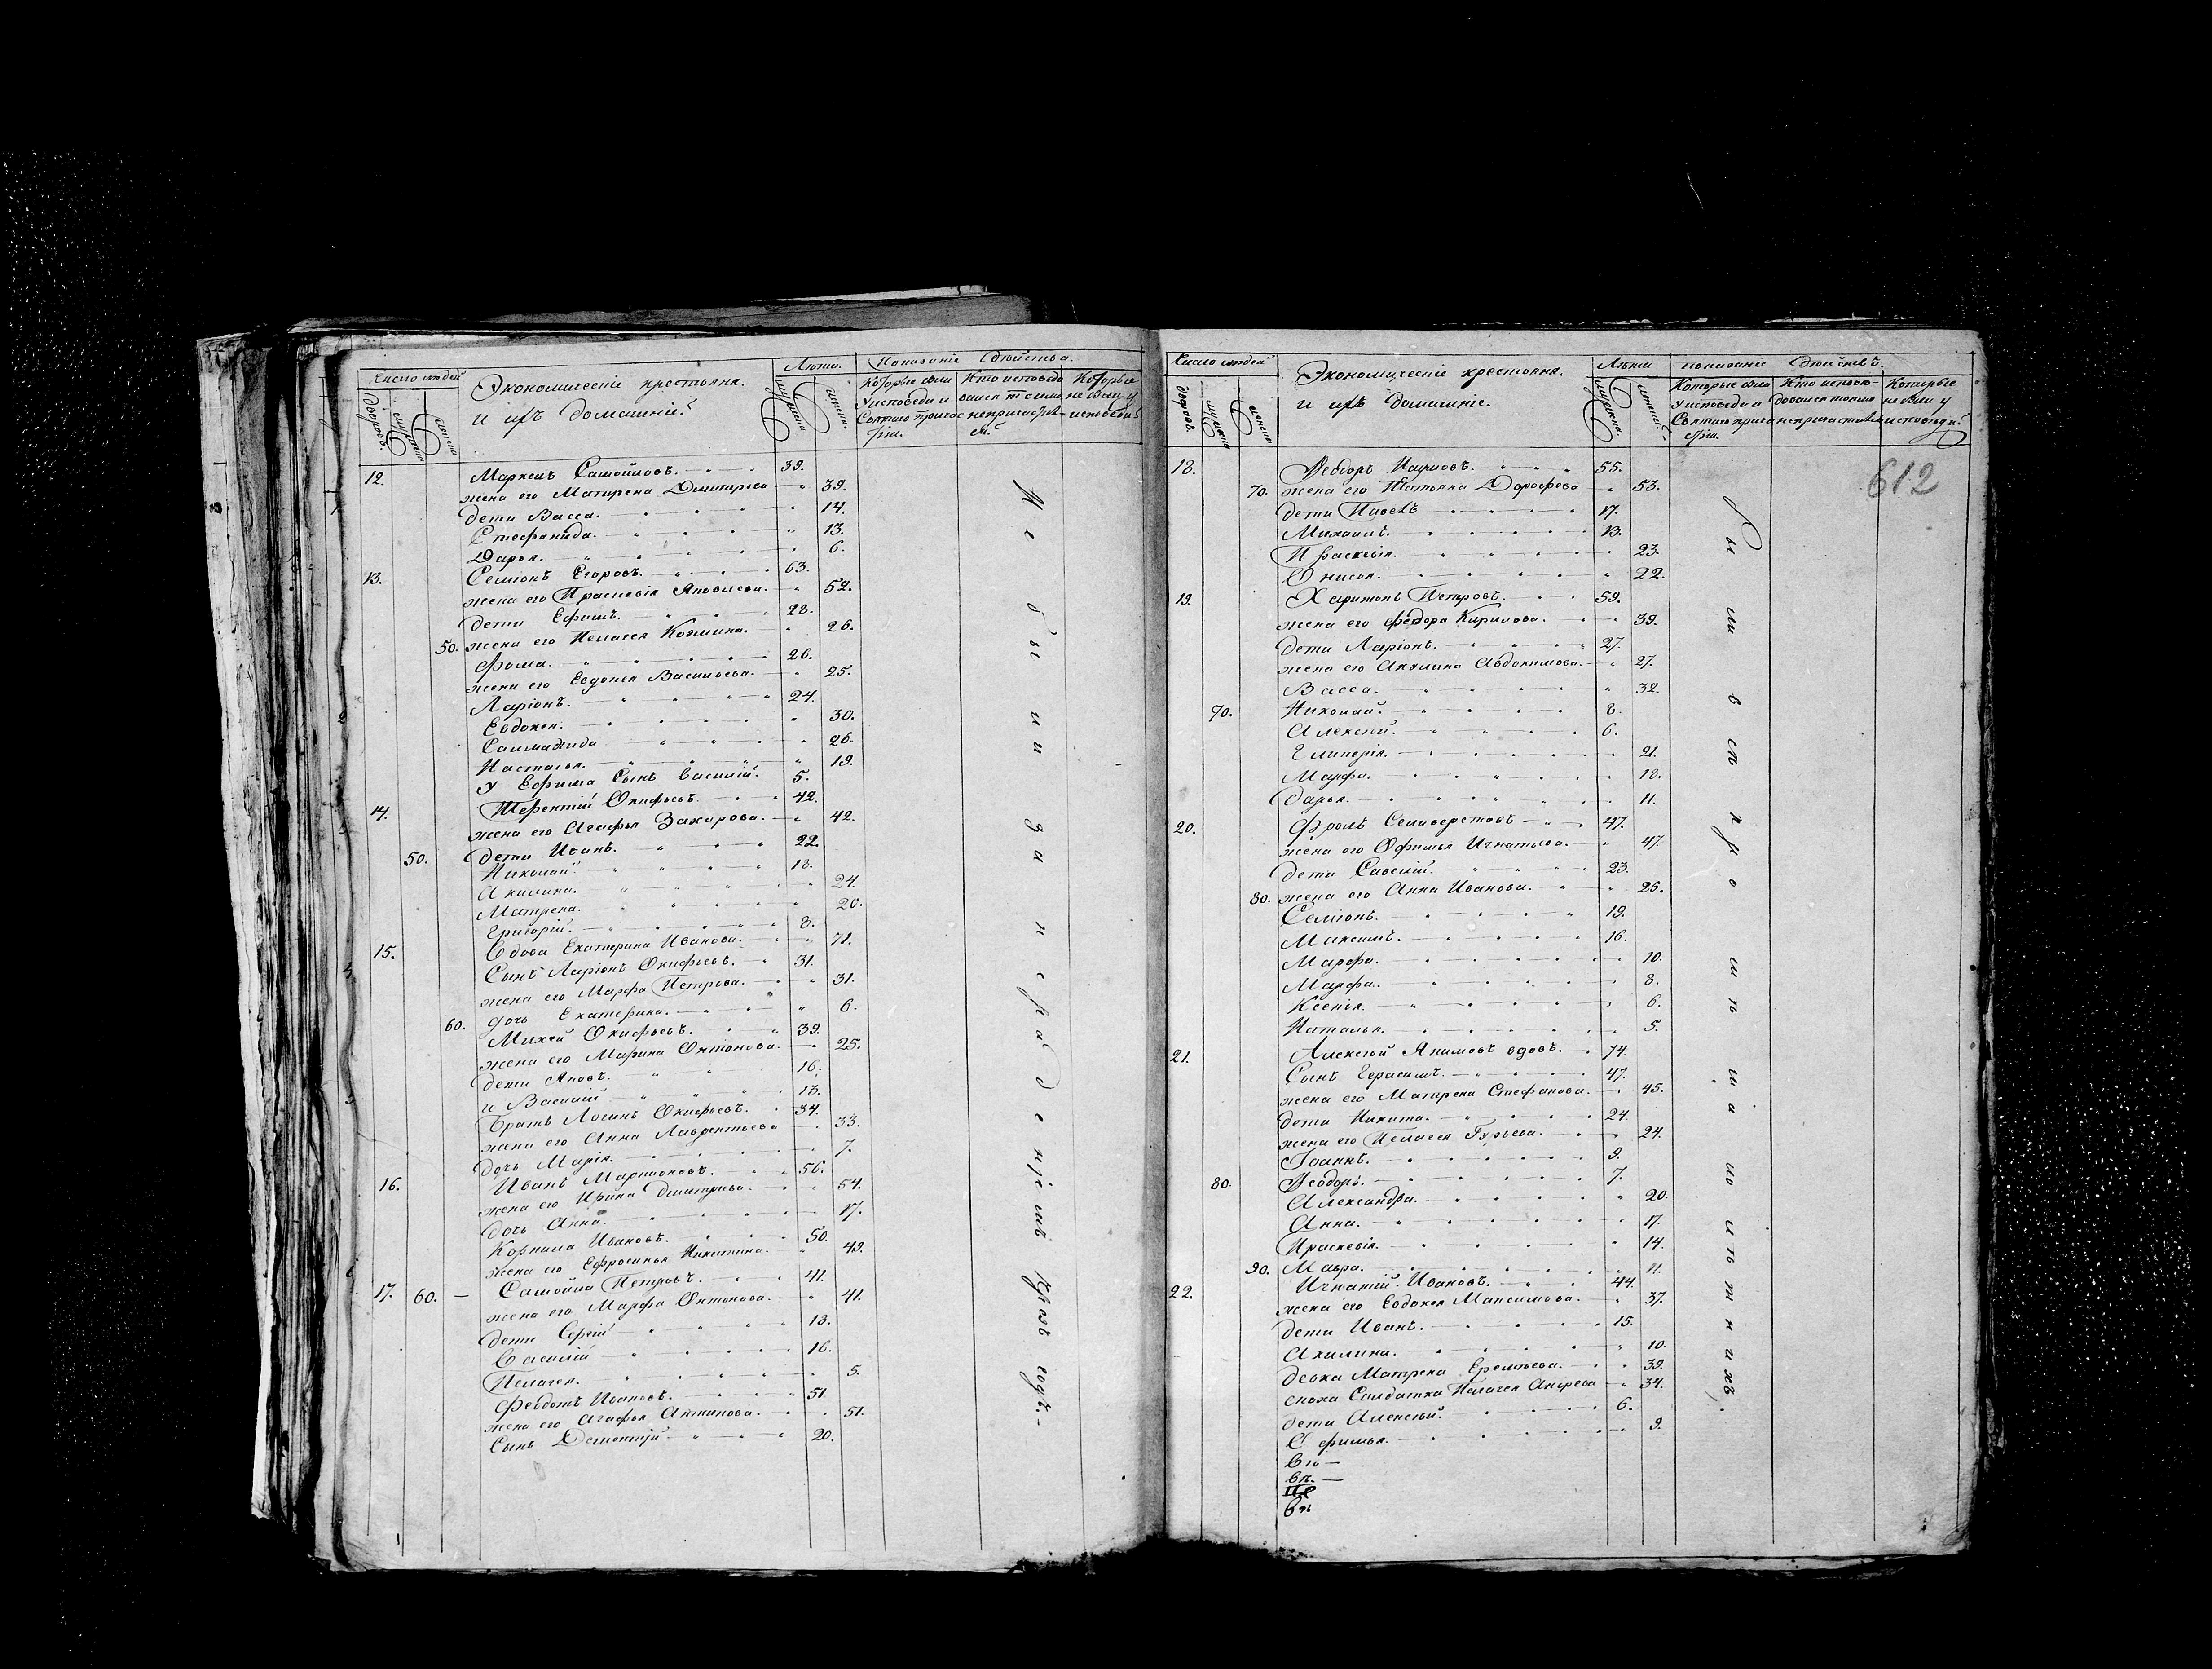 Число людей
Дворовъ.
мужска
женска
Экономическіе крестьяня.
и ихъ домашніе
Лѣта.
мужска
женска.
Показаніе дѣйства.
Которые были
у исповеди и
Святаго причас
тія.
Кто исповедо
вался
не причасти
Которые
не были у
исповеди
12. Маркелъ Самойловъ. 39.
жена его Матрена Дмитріева 39.
дети Васса. 14.
Стефанида. 13.
Дарья. 6.
13. Семіонъ Егоровъ. 63.
жена его Прасковія Яковлева. 52.
дети Ефимъ. 28.
50. жена его Пелагея Козмина. 26.
Фома. 26.
жена его Евдокея Васильева. 25.
Ларіонъ. 24.
Евдокея. 30.
26.
Настасья. 19.
У Ефима сынъ Василій. 5.
14. Терентій Окифьевъ. 42.
жена его Агафья Захарова. 42.
50. дети Иванъ. 22.
Николай. 18.
Акилина. 24.
Матрена. 20.
Григорій. 8.
15. Вдова Екатерина Иванова. 71.
Сынъ Ларіонъ Окифьевъ. 31.
жена его Марфа Петрова. 31.
60. дочь Екатерина. 6.
Михей Окифьевъ. 39.
жена его Марина Онтонова. 25.
дети Яковъ. 16.
и Василий 13.
Братъ Логинъ Окифьевъ. 34.
жена его Анна Лаврентьева 33.
дочь Марія. 7.
16. Иванъ 56.
жена его Ирина Дмитрива. 54.
дочь Анна. 17.
Корнила Ивановъ. 50.
жена его Ефросинья Никитина. 49.
17. 60. Самойла Петровъ. 41.
жена его Марфа Онтонова. 41.
дети Сергій 18.
Василій 16.
Пелагея. 5.
Федотъ Ивановъ. 51.
жена его Агафья Антипова. 51.
Сынъ Дементій 20.
Не были за нерадениемъ чрезъ годъ.
Число людей
дворовъ.
мужска
женска
Экономическіе крестьяня.
и ихъ домашніе.
Лѣта
мужска.
женска
показаніе дѣйствъ.
Которые были
у исповеди и
Святаго прича
тія.
Кто исповѣ-
довался токмо
не причастился
Которые
не были у
исповѣди.
612
18. Федоръ Наумовъ. 55.
70. жена его Татьяна Дорофеева 53.
дети Павелъ 17.
Михаилъ. 13.
Прасковія. 23.
Онисья. 22.
19. Харитонъ Петровъ. 59.
жена его Федора Кирилова. 39.
дети Ларіонъ. 27.
жена его Акулина Авдокимова. 27.
Васса. 32.
70. Николай. 8.
Алексѣй. 6.
Гликерія. 21.
Марфа. 18.
Дарья. 11.
20. Фролъ Селиверстовъ 47.
жена его Офимья Игнатьева. 47.
дети Савелій. 23.
80. жена его Анна Иванова. 25.
Семіонъ. 19.
Максимъ. 16.
Марфа. 10.
Марфа. 8.
Ксенія. 6.
Наталья. 5.
21. Алексѣй Якимовъ вдовъ. 74.
Сынъ Герасимъ. 47.
жена его Матрена Стефанова. 45.
дети Никита. 24.
жена его Пелагея Гурьева. 24.
Іоаннъ. 9.
80. Феодоръ. 7.
Александра. 20.
Анна. 17.
Прасковія. 14.
90. Мавра. 11.
22. Игнатій Ивановъ. 44.
жена его Евдокея Максимова. 37.
дети Иванъ. 15.
Акилина. 10.
девка Матрена Еремѣева. 39.
сноха Салдатка Пелагея Андреева 34.
дети Алексѣй. 6.
Офимья. 9.